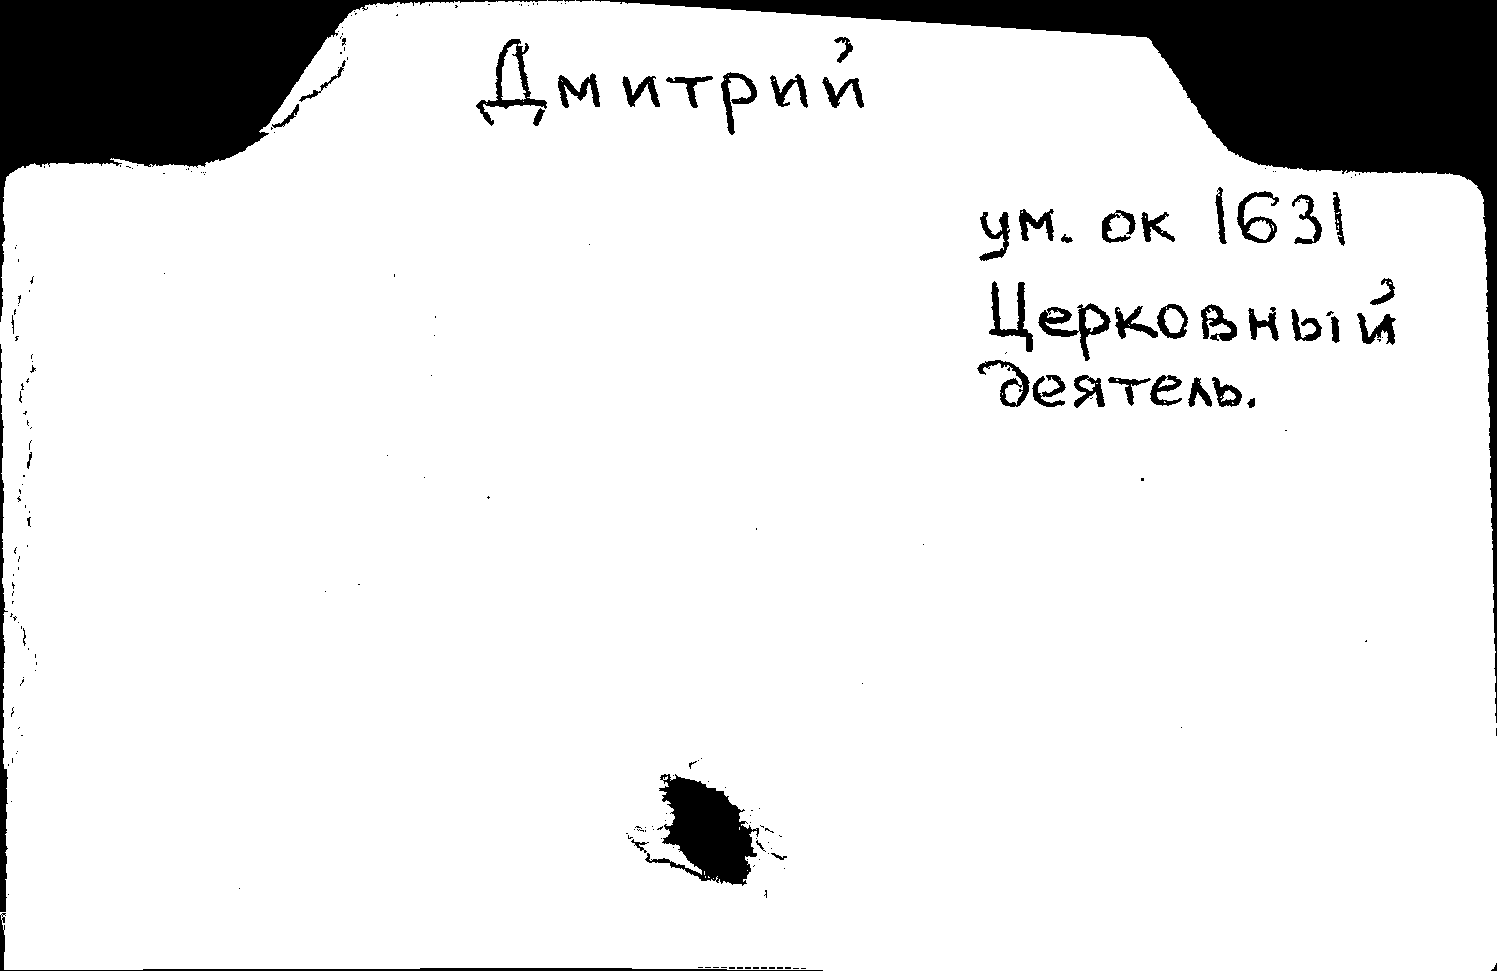 Дмитрий
ум. ок 1631
Церковный
деятель.